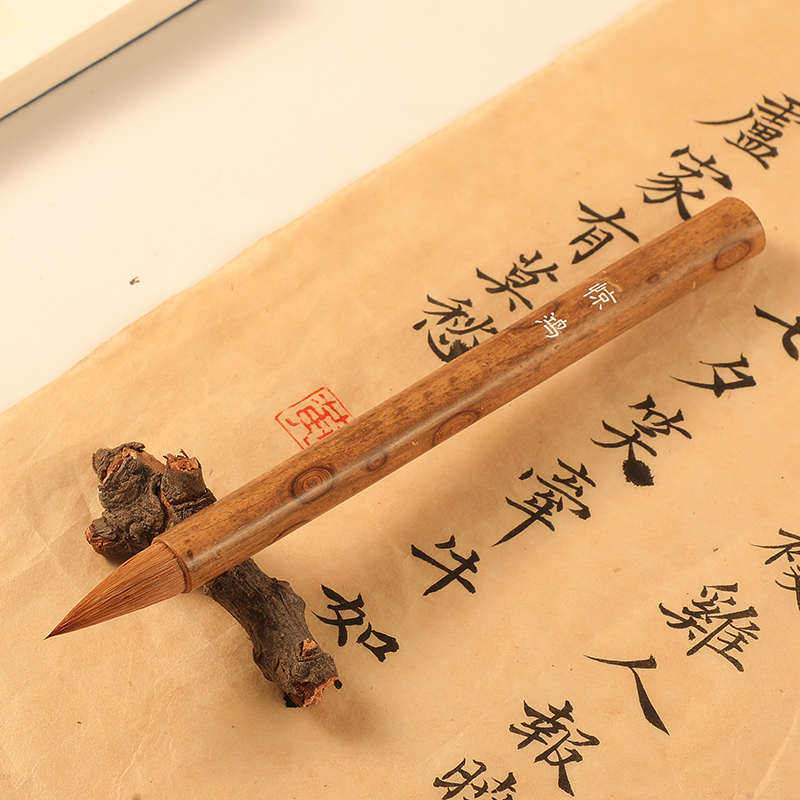 雞人報曉
七夕笑牽牛如
盧家有莫愁
惊鸿